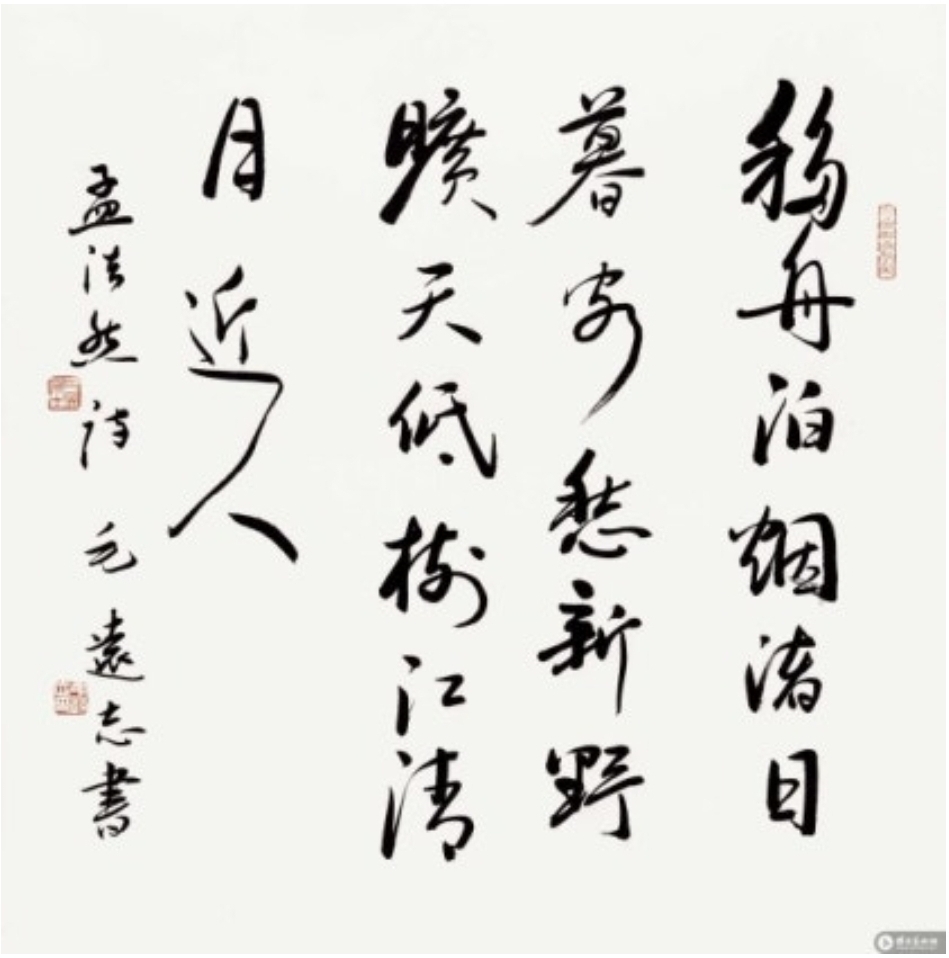 移舟泊烟渚日
暮客愁新野
曠天低樹江清
月近人
孟浩然詩 毛遠志書